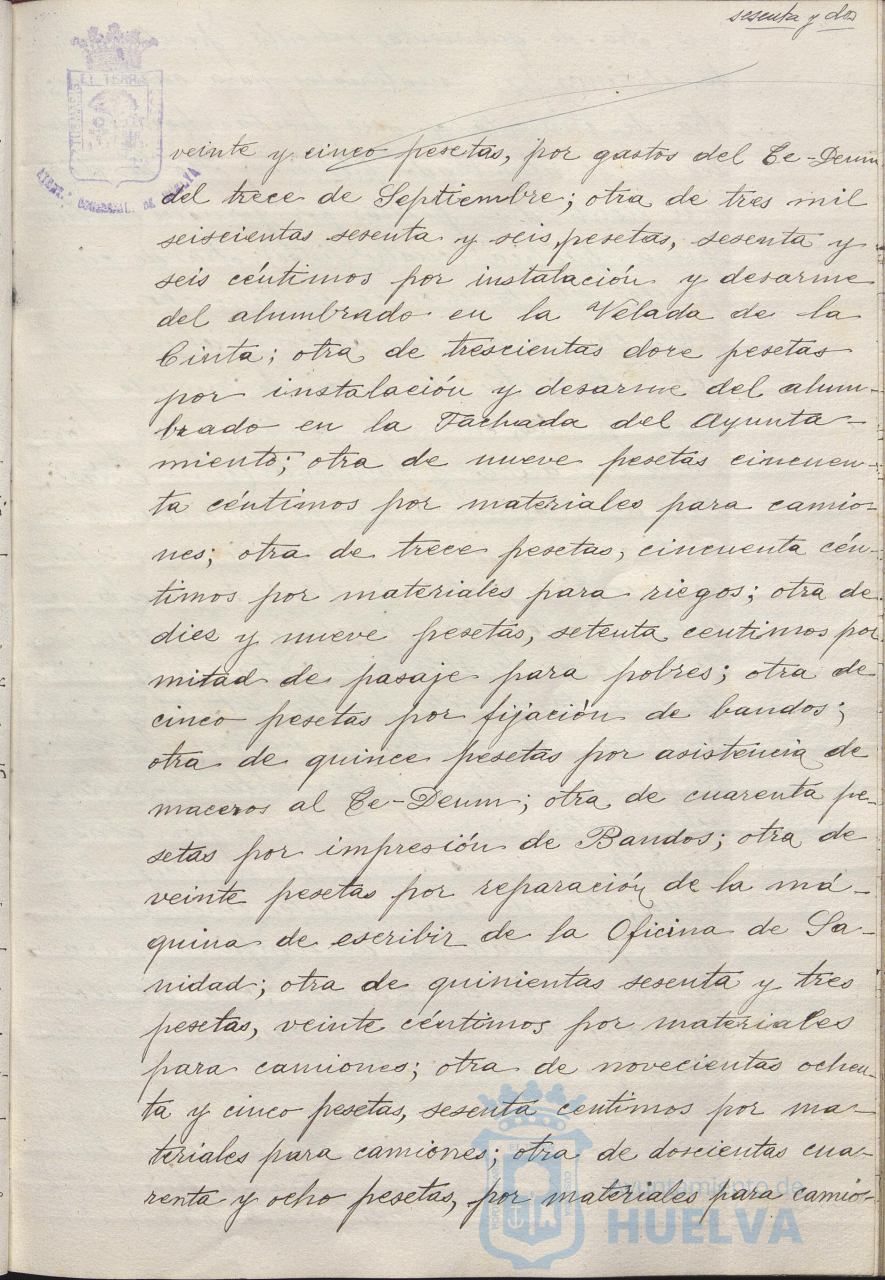 sesenta y dos
veinte y cinco pesetas, por gastos del Te-Deum
del trece de Septiembre; otra de tres mil
seiscientas sesenta y seis pesetas, sesenta y
seis céntimos por instalación y desarme
del alumbrado en la Velada de la
Cinta; otra de trescientas doce pesetas
por instalación y desarme del alum-
brado en la Fachada del Ayunta-
miento; otra de nueve pesetas cincuen-
ta céntimos por materiales para camio-
nes; otra de trece pesetas, cincuenta cén-
timos por materiales para riegos; otra de
diez y nueve pesetas, setenta centimos por
mitad de pasaje para pobres; otra de
cinco pesetas por fijación de bandos;
otra de quince pesetas por asistencia de
maceros al Te-Deum; otra de cuarenta pe-
setas por impresión de Bandos; otra de
veinte pesetas por reparación de la má-
quina de escribir de la Oficina de Sa-
nidad; otra de quinientas sesenta y tres
pesetas, veinte céntimos por materiales
para camiones; otra de novecientas ochen-
ta y cinco pesetas, sesenta centimos por ma-
teriales para camiones; otra de doscientas cua-
renta y ocho pesetas, por materiales para camio-
Ayuntamiento de
HUELVA